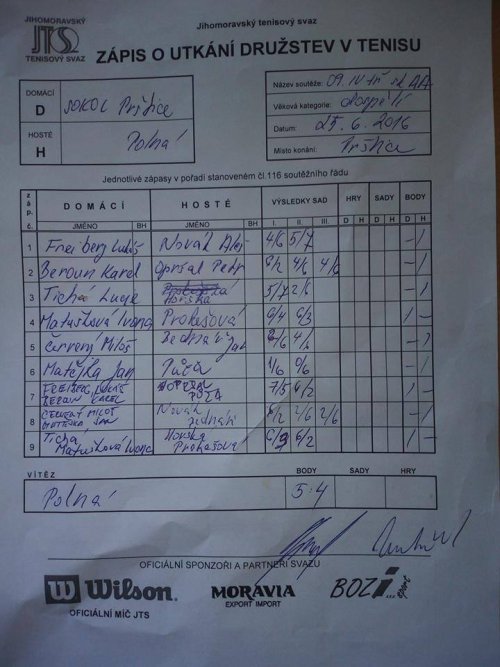 JIHOMORAVSKÝ
JTS
TENISOVÝ SVAZ
Jihomoravský tenisový svaz
ZÁPIS O UTKÁNÍ DRUŽSTEV V TENISU
DOMÁCÍ
D SOKOL Prštice
HOSTÉ
H Polná
Název soutěže: 09. IV tř.
Věková kategorie: dospělí
Datum: 25.6.2016
Místo konání: Prštice
Jednotlivé zápasy v pořadí stanoveném čl.116 soutěžního řádu
záp. č. DOMÁCÍ HOSTÉ VÝSLEDKY SAD HRY SADY BODY
JMÉNO BH JMÉNO BH I. II. III. D H D H D H
1 Freiberg Lukáš Novák 4/6 5/7 - 1
2 Beroun Karel Opršal Petr 6/2 4/6 4/6 - 1
3 Tichá Lucie Horská 5/7 2/6 - 1
4 Matušková Ivona Prokešová 6/4 6/3 1 -
5 Červený Miloš - 1
6 Matějka Jan Půža 1 -
7 FREIBERG LUKÁŠ
BEROUN KAREL 7/5 6/2 1 -
8 ČERVENÝ MILOŠ Novák
MATĚJKA JAN 6/2 2/6 2/6 - 1
9 Tichá Horská
Matušková Ivona Prokešová 6/2 1 -
VÍTĚZ BODY SADY HRY
Polná 5:4
OFICIÁLNÍ SPONZOŘI A PARTNEŘI SVAZU
W Wilson.
OFICIÁLNÍ MÍČ JTS
MORAVIA
EXPORT IMPORT
BOZI... sport